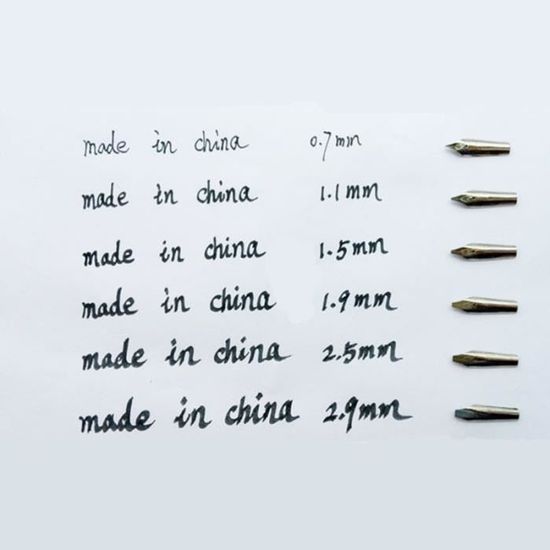 made in china 0.7mm
made in china 1.1mm
made in china 1.5mm
made in china 1.9mm
made in china 2.5mm
made in china 2.9mm